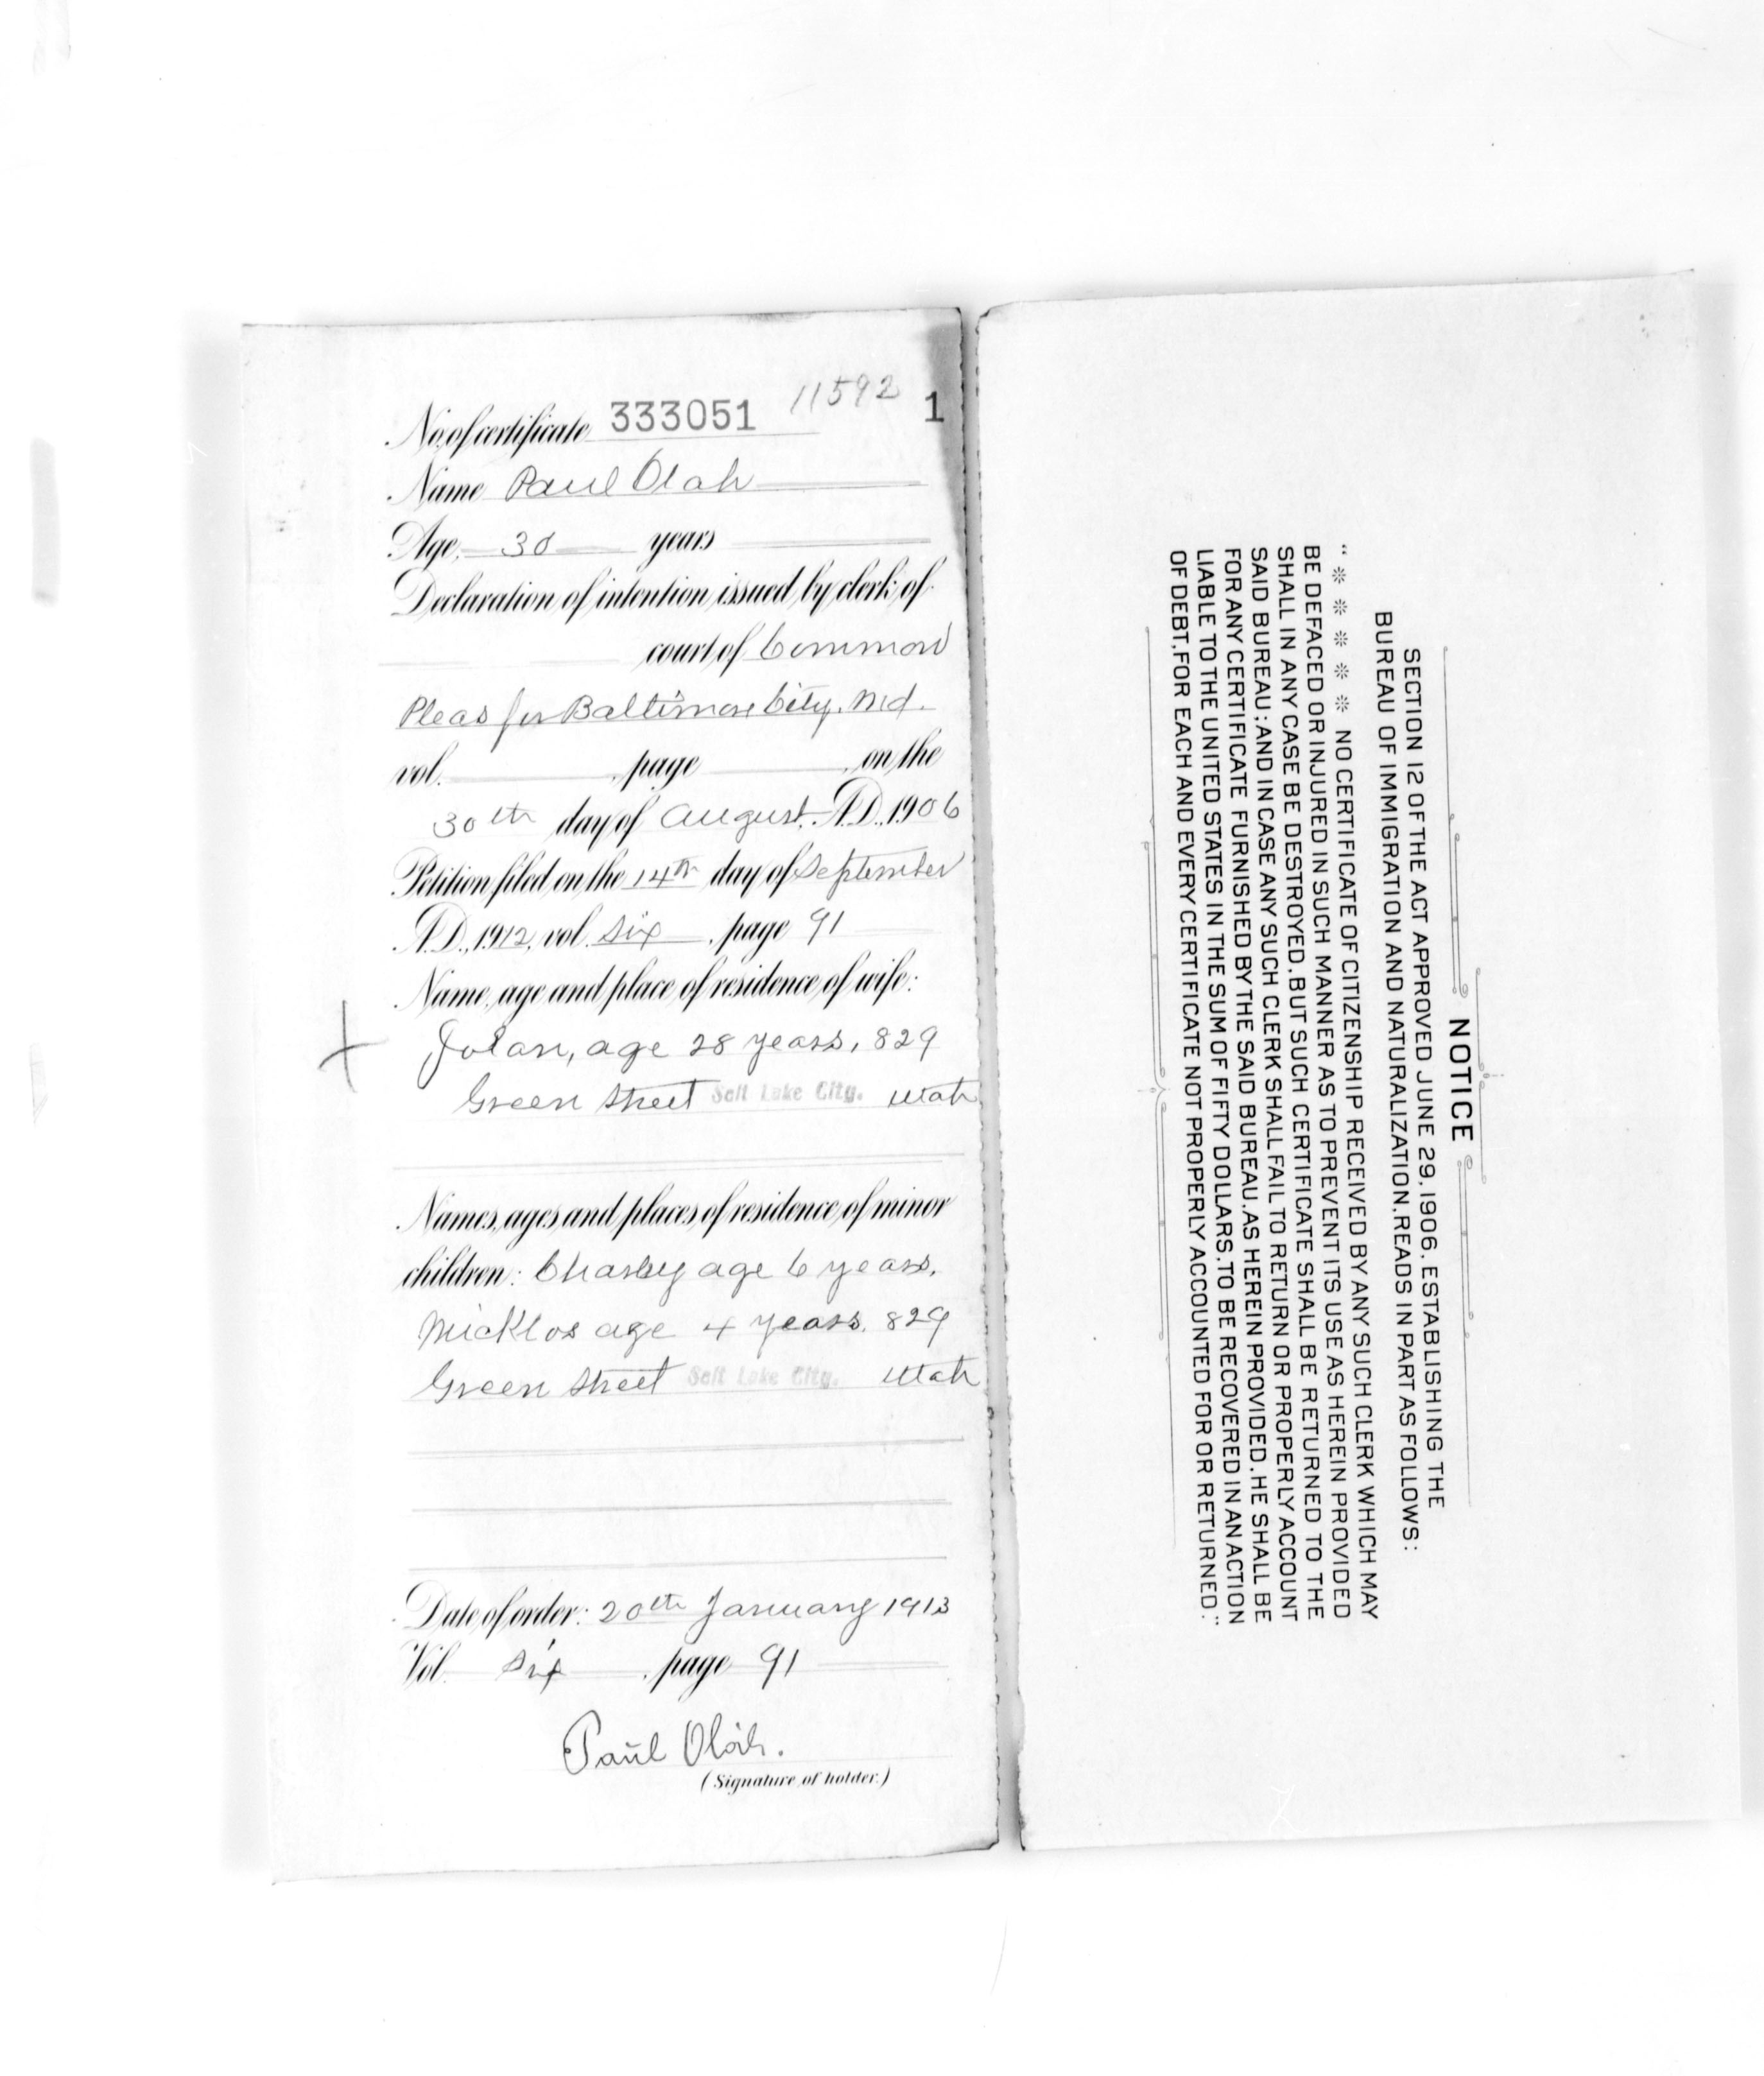 11592
No. of certificate 333051 1
Name Paul Olah
Age, 30 years
Declaration of intention issued by clerk of
court of Common
Pleas for Baltimore City, Md.
vol. , page , on the
30th day of August, A.D., 1906
Petition filed on the 14th day of September
A.D., 1912, vol. six , page 91
Name, age and place of residence of wife:
Jolan, age 28 years, 829
Green Street Salt Lake City. Utah
Names, ages and places of residence of minor
children: Charley age 6 years,
Micklos age 4 years, 829
Green Street Salt Lake City. Utah
Date of order: 20th January 1913
Vol. six , page 91
Paul Oláh.
(Signature of holder.)
NOTICE
SECTION 12 OF THE ACT APPROVED JUNE 29, 1906, ESTABLISHING THE
BUREAU OF IMMIGRATION AND NATURALIZATION, READS IN PART AS FOLLOWS:
“ * * * * * NO CERTIFICATE OF CITIZENSHIP RECEIVED BY ANY SUCH CLERK WHICH MAY
BE DEFACED OR INJURED IN SUCH MANNER AS TO PREVENT ITS USE AS HEREIN PROVIDED
SHALL IN ANY CASE BE DESTROYED, BUT SUCH CERTIFICATE SHALL BE RETURNED TO THE
SAID BUREAU; AND IN CASE ANY SUCH CLERK SHALL FAIL TO RETURN OR PROPERLY ACCOUNT
FOR ANY CERTIFICATE FURNISHED BY THE SAID BUREAU, AS HEREIN PROVIDED, HE SHALL BE
LIABLE TO THE UNITED STATES IN THE SUM OF FIFTY DOLLARS, TO BE RECOVERED IN AN ACTION
OF DEBT, FOR EACH AND EVERY CERTIFICATE NOT PROPERLY ACCOUNTED FOR OR RETURNED.”